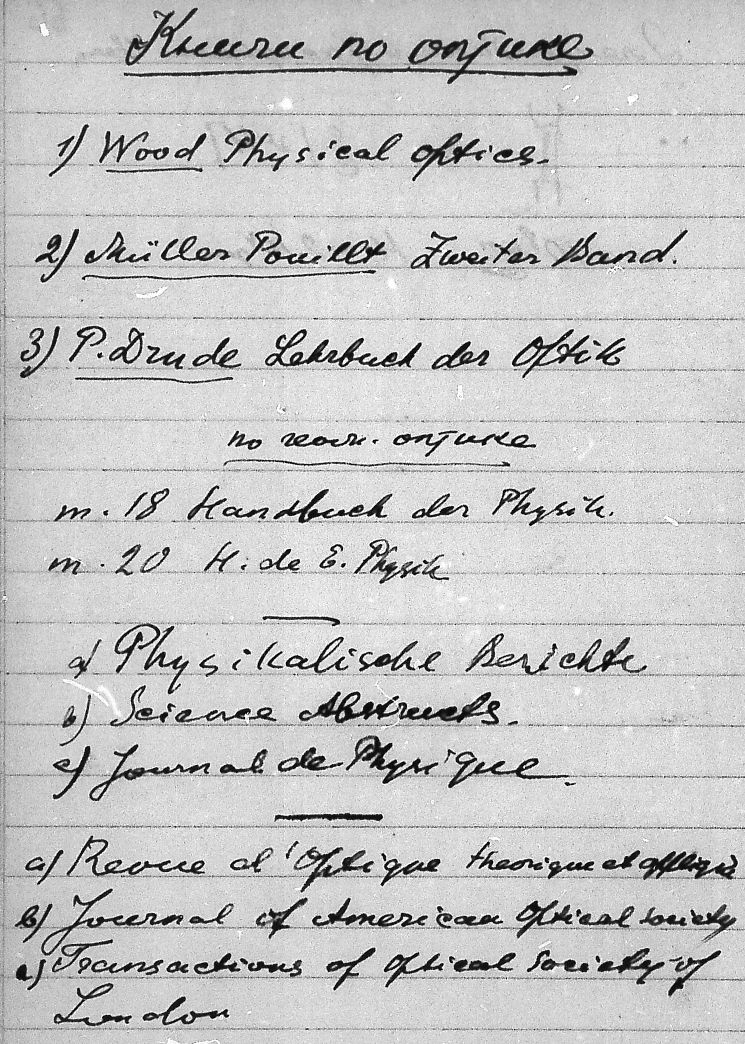 Книги по оптике
1) Wood Physical optics.
2) Müller Pouillt Zweiter Band.
3) P. Drude Lehrbuch der Optik
по геом. оптике
т. 18 Handbuch der Physik.
т. 20 H. de E. Physik
a) Physikalische Berichte
b) Science Abstracts.
c) Journal de Physique.
a) Revue d'Optique theorique et
b) Journal of American Optical society
c) Transactions of optical Society of
London